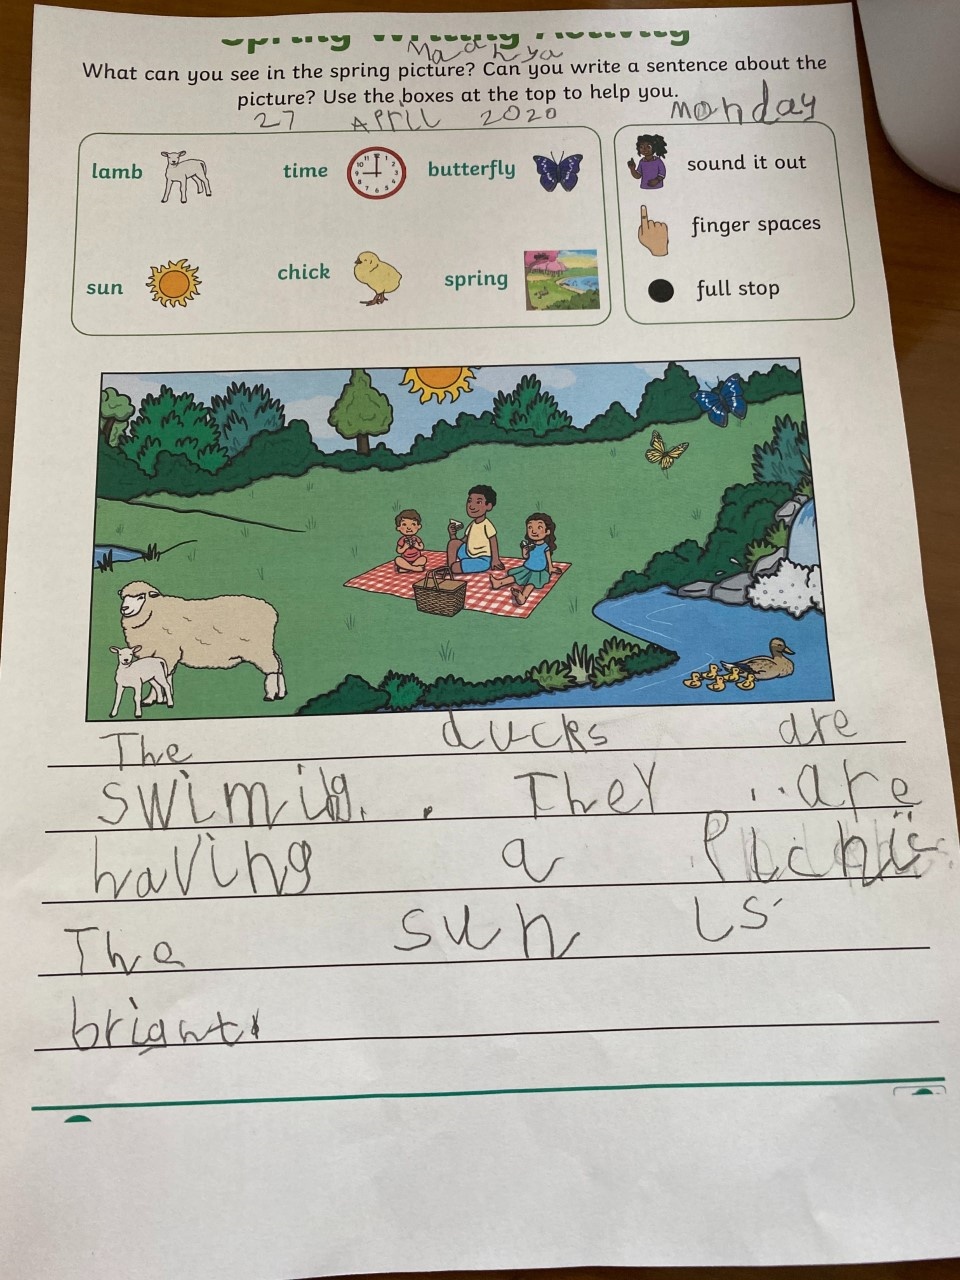 Spring Writing Activity
Maahya
What can you see in the spring picture? Can you write a sentence about the
picture? Use the boxes at the top to help you.
27 APrIL 2020 monday
lamb time butterfly
sun chick spring
sound it out
finger spaces
full stop
The ducks are
swiming. . They ..are
having a Picnic
The sun is
bright.